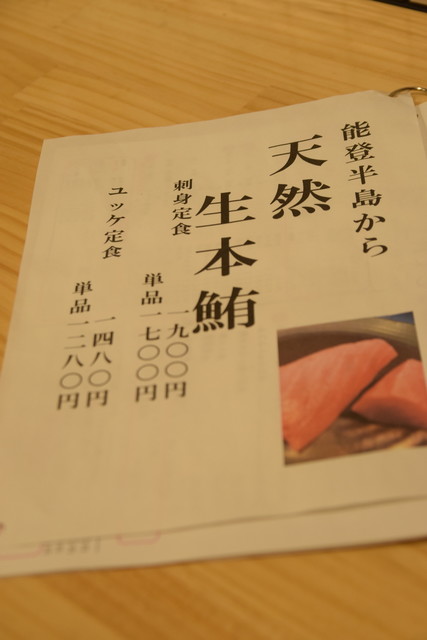 能登半島から
天然
生本鮪
刺身定食
一九〇〇円
単品一七〇〇円
ユッケ定食
一四八〇円
単品一二八〇円